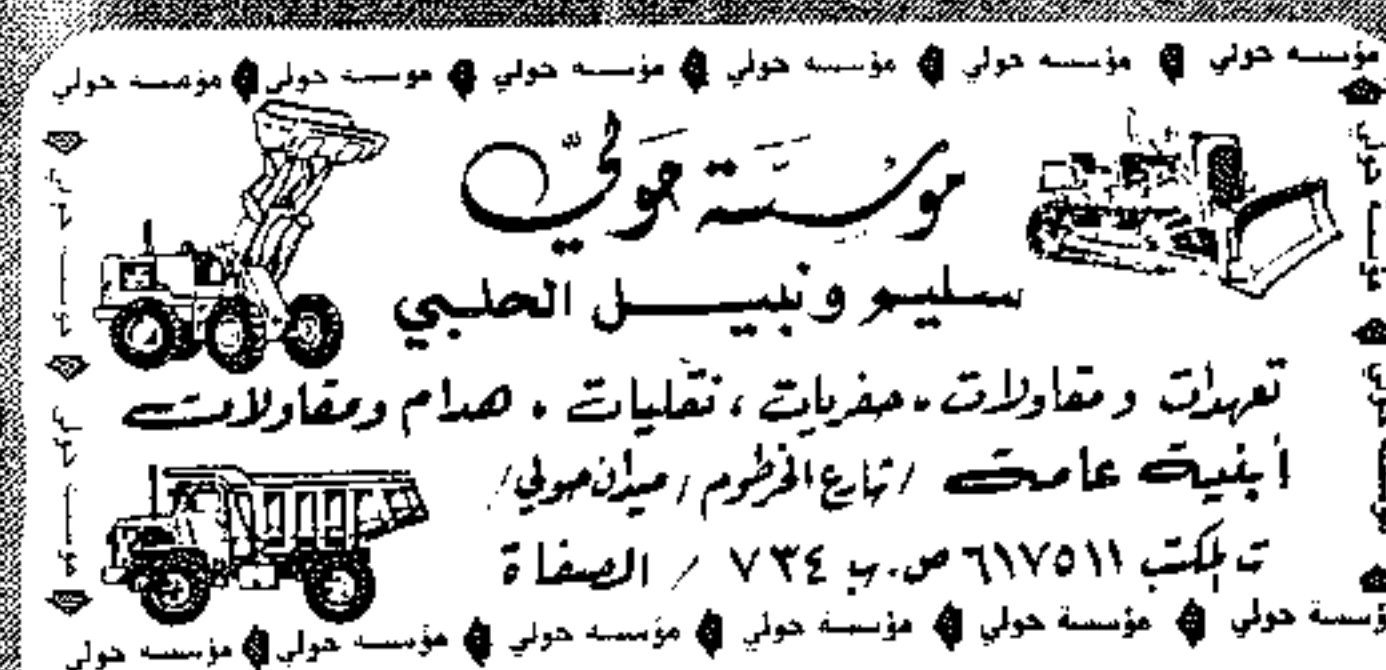 مؤسسه حولي مؤسسه حولي مؤسسه حولي مؤسسه حولي مؤسسه حولي مؤسسه حولي
مؤسسة حولي
سليم ونبيل الحلبي
تعهدات ومقاولات . حفريات ، نقليات . هدام ومقاولات
أبنية عامة / شارع الخرطوم / ميدان حولي /
ت المكتب ٦١٧٥١١ ص.ب ٧٣٤ / الصفاة
مؤسسة حولي مؤسسة حولي مؤسسة حولي مؤسسه حولي مؤسسه حولي مؤسسه حولي